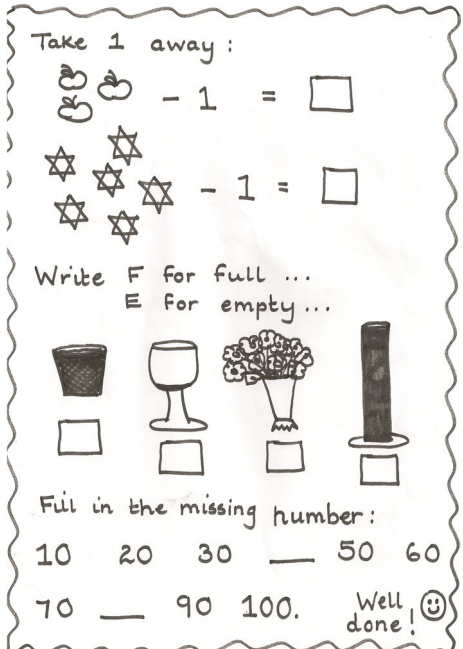 Take 1 away :
- 1 =
- 1 =
Write F for full ...
E for empty ...
Fill in the missing number :
10 20 30 ___ 50 60
70 ___ 90 100.
Well
done !